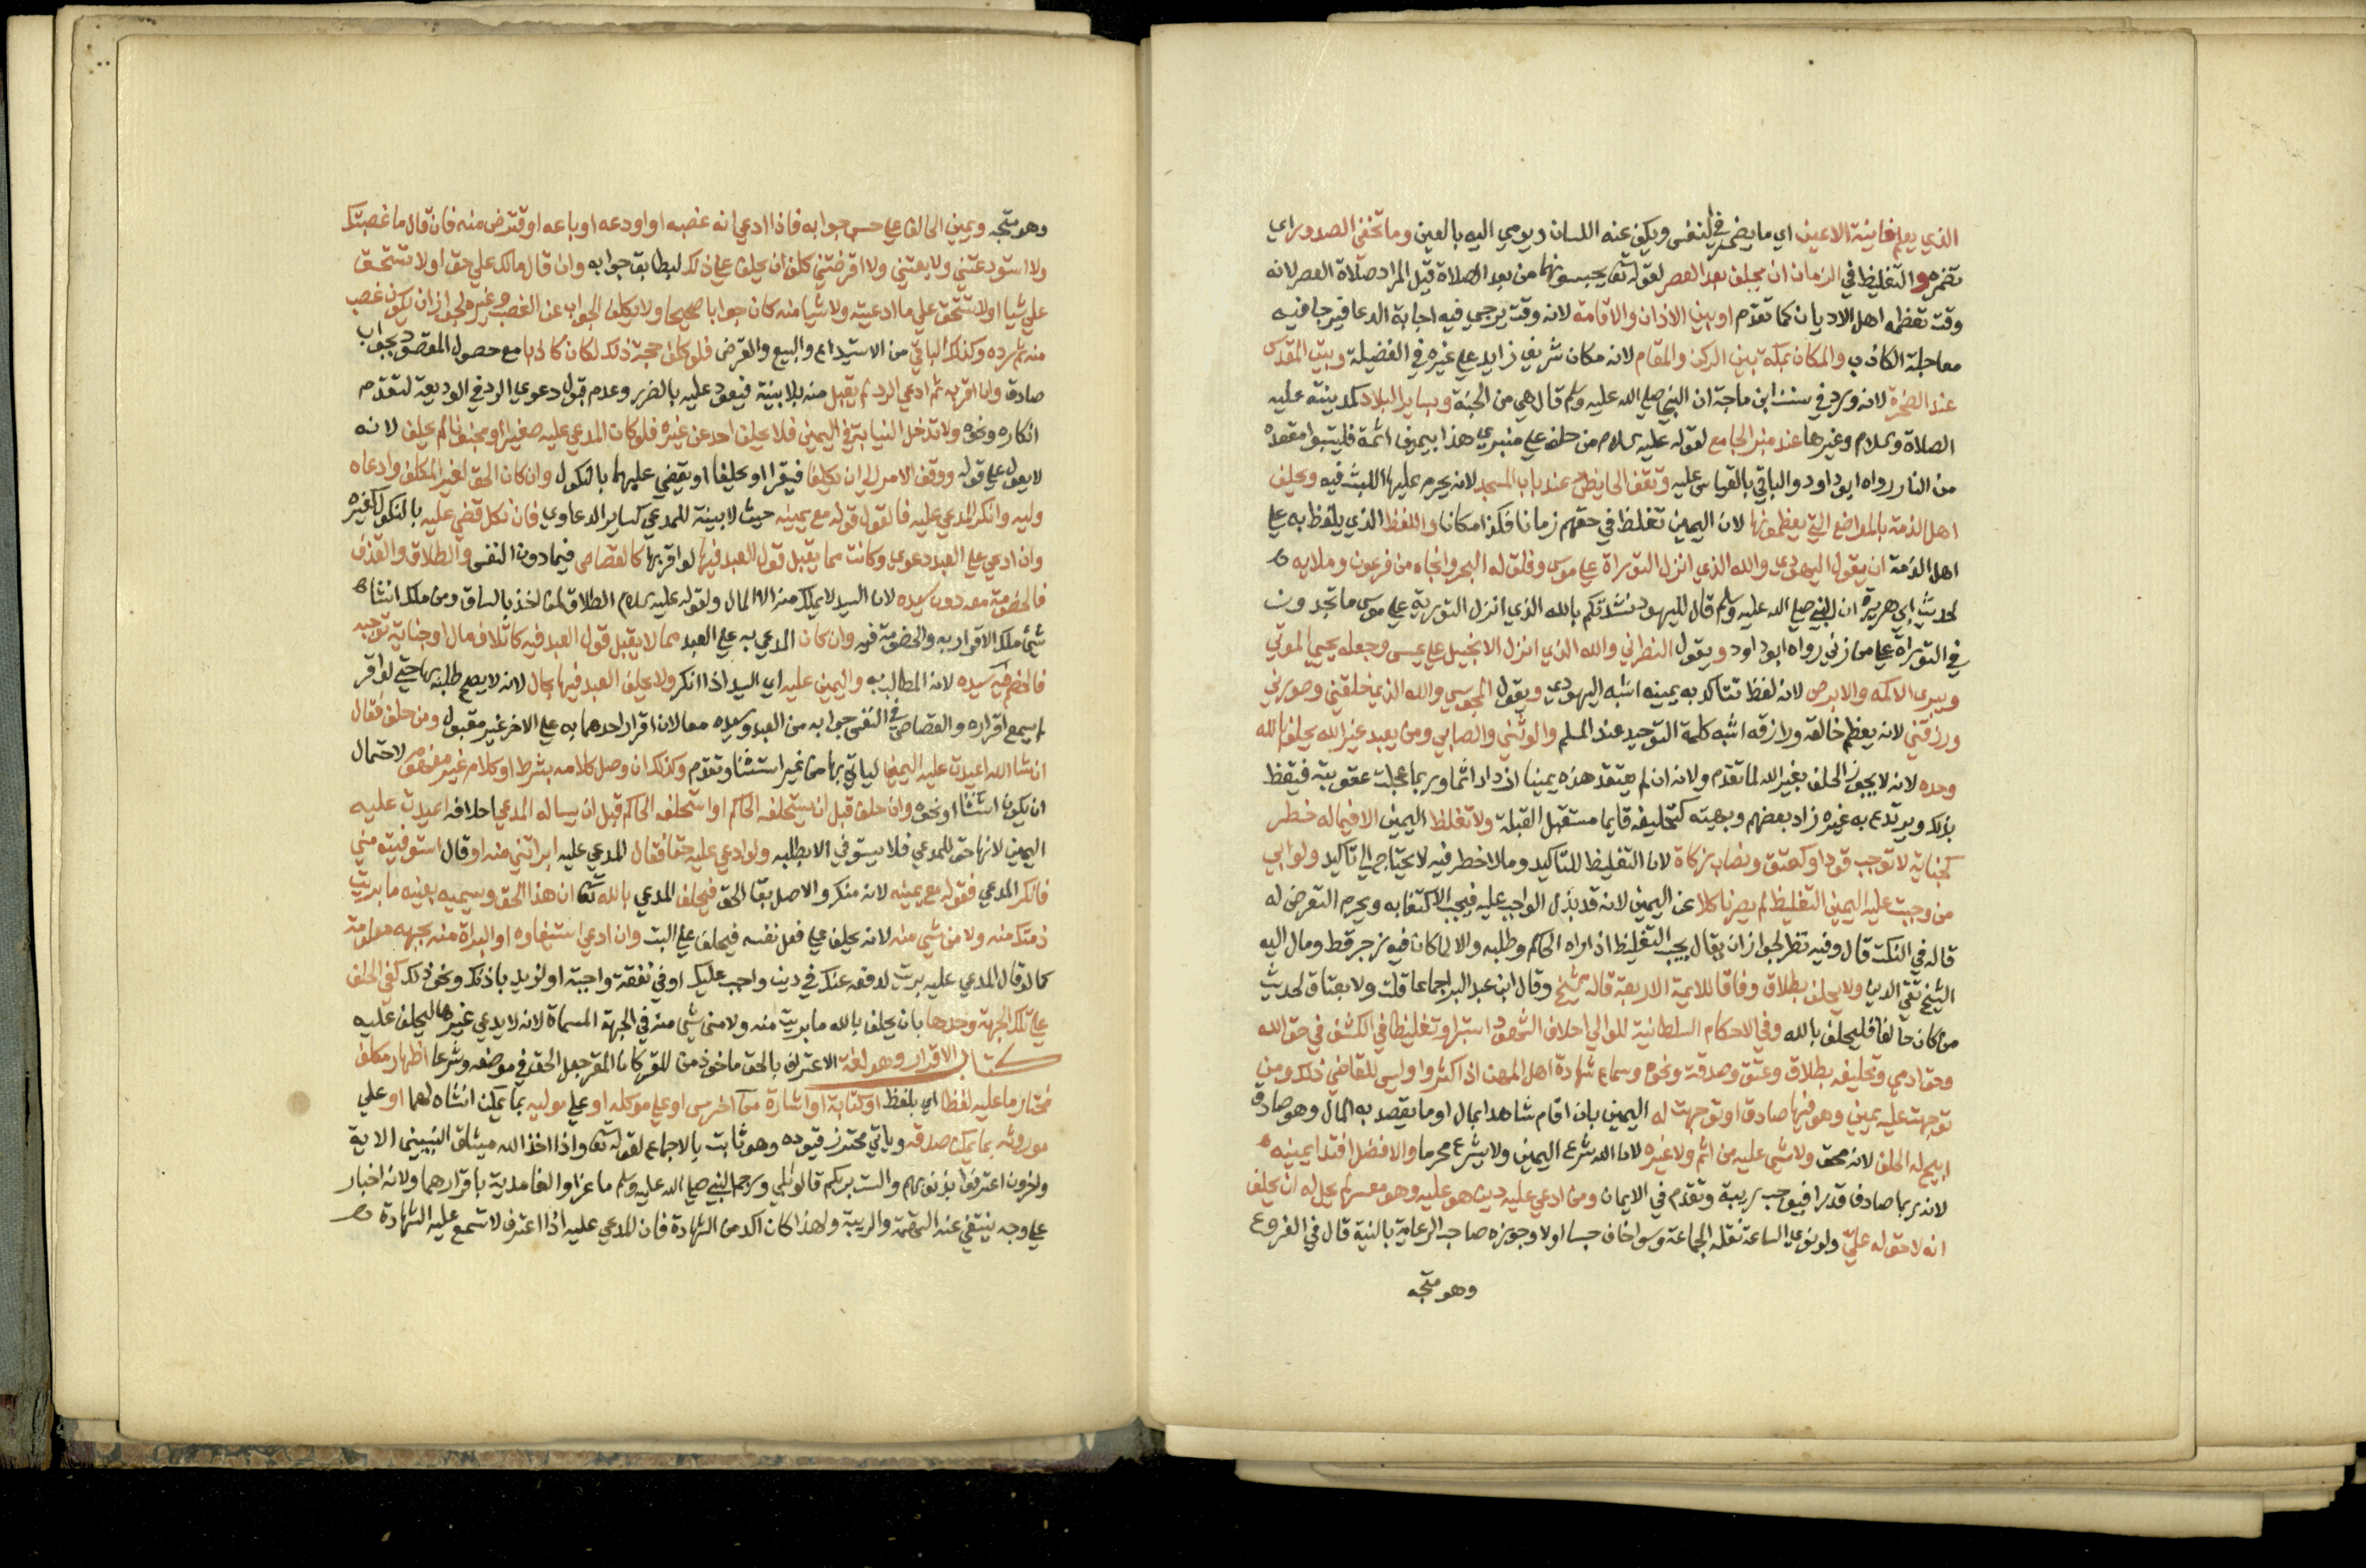 الذي يعلم خاينة الاعين اي ما يضمر في النفس ويكف عنه اللسان ويومي اليه بالعين وما تخفي الصدور اي
تضمره والتغليظ في الزمان ان يحلف بعد العصر لقوله تعا تحبسونهما من بعد الصلاة قيل المراد صلاة العصر لانه
وقت تعظمه اهل الاديان كما تقدم او بين الاذان والاقامة لانه وقت يرجي فيه اجابة الدعا فيرجا فيه
معاجلة الكاذب والمكان بمكة بين الركن والمقام لانه مكان شريف زايد علي غيره في الفضيلة وببيت المقدس
عند الصخرة لانه ورد في سنن ابن ماجة ان النبي صلي الله عليه وسلم قال هي من الجنة وبساير البلاد كمدينته عليه
الصلاة وسلام وغيرها عند منبر الجامع لقوله عليه سلام من حلف علي منبري هذا بيمين اثمة فليتبوا مقعده
من النار رواه ابو داود والباقي بالقياس عليه وتقف الحايض عند باب المسجد لانه يحرم عليها اللبث فيه ويحلف
اهل الذمة بالمواضع التي يعظمونها لان اليمين تغلظ في حقهم زمانا فكذا مكانا واللفظ الذي يلفظ به علي
اهل الذمة ان يقول اليهودي والله الذي انزل التوراة علي موسى وفلق له البحر وانجاه من فرعون وملايه
لحديث ابي هريرة ان النبي صلي الله عليه وسلم قال لليهود نشدتكم بالله الذي انزل التورية علي موسى ما تجدون
في التوراة علي من زني رواه ابو داود ويقول النصراني والله الذي انزل الانجيل علي عيسى وجعله يحيي الموتي
ويبرى الاكمه والابرص لانه لفظ تتاكد به يمينه اشبه اليهودي ويقول المجوسي والله الذي خلقني وصورني
ورزقني لانه يعظم خالقه ورازقه اشبه كلمة التوحيد عند المسلم والوثني والصابي ومن يعبد غير الله يحلف بالله
وحده لانه لا يجوز الحلف بغير الله لما تقدم ولانه ان لم يعتقد هذه يمينا ازداد اثما وربما عجلت عقوبته فيتعظ
بذلك ويرتدع به غيره زاد بعضهم وبهيته كتحليفه قايما مستقبل القبلة ولا تغلظ اليمين الا فيما له خطر
كجناية لا توجب قودا وكعتق ونصاب زكاة لان التغليظ للتاكيد وما لا خطر فيه لا يحتاج الي تاكيد ولو ابي
من وجبت عليه اليمين التغليظ لم يصر ناكلا عن اليمين لانه قد بذل الواجب عليه فيجب الاكتفا به ويحرم التعرض له
قاله في النكت قال وفيه نظر لجواز ان يقال يجب التغليظ اذا راه الحاكم وطلبه والا لما كان فيه زجر قط ومال اليه
الشيخ تقي الدين ولا يحلف بطلاق وفاقا للايمة الاربعة قاله الشيخ وقال ابن عبد البر اجماعا قلت ولا بعتاق لحديث
من كان حالفا فليحلف بالله وفي الاحكام السلطانية للوالي احلاف الشهود استبراء وتغليظا في الكشف في حق الله
وحق ادمي وتحليفه بطلاق وعتق وصدقة ونحوه وسماع شهادة اهل المهن اذا كثروا وليس للقاضي ذلك ومن
توجهت عليه يمين وهو فيها صادق او توجهت له اليمين بان اقام شاهدا بمال او ما يقصد به المال وهو صادق
ابيح له الحلف لانه محق ولا شي عليه من اثم ولا غيره لان الله شرع اليمين ولا يشرع محرما والافضل افتدا يمينه
لانه ربما صادف قدرا فيوجب ريبة وتقدم في الايمان ومن ادعي عليه دين هو عليه وهو معسر لم يحل له ان يحلف
انه لا حق له علي ولو نوى الساعة نقله الجماعة وسوا خاف حبسا اولا وجوزه صاحب الرعاية بالنية قال في الفروع
وهو متجه
وهو متجه ويمين الحالف علي حسب جوابه فاذا ادعي انه غصبه او اودعه او باعه او اقترض منه فان قال ما غصبتك
ولا استودعتني ولا بعتني ولا اقرضتني كلف ان يحلف علي ذلك ليطابق جوابه وان قال مالك علي حق او لا تستحق
علي شيا او لا تستحق علي ما ادعيته ولا شيا منه كان جوابا صحيحا ولا يكلف الجواب عن الغصب وغيره لجواز ان يكون غصب
منه ثم رده وكذلك الباقي من الاستيداع والبيع والقرض فلو كلف حجة ذلك لكان كاذبا مع حصول المقصود بجواب
صادق وان اقر به ثم ادعي الرد لم يقبل منه بلا بينة فيعود عليه بالضرر وعدم قبول دعوي الرد في الوديعة لتقدم
انكاره ونحوه ولا تدخل النيابة في اليمين فلا يحلف احد عن غيره فلو كان المدعي عليه صغيرا او مجنونا لم يحلف لانه
لا يعول علي قوله ووقف الامر الي ان يكلفا فيقرا او يحلفا او يقضي عليهما بالنكول وان كان الحق لغير المكلف وادعاه
وليه وانكر المدعي عليه فالقول قوله مع يمينه حيث لا بينة للمدعي كساير الدعاوي فان نكل قضي عليه بالنكول كغيره
وان ادعي علي العبد دعوي وكانت مما يقبل قول العبد فيها لو اقر بها كالقصاص فيما دون النفس والطلاق والقذف
فالخصومة معه دون سيده لان السيد لا يملك منه الا المال ولقوله عليه سلام الطلاق لمن اخذ بالساق ومن ملك انشا
شي ملك الاقرار به والخصومة فيه وان كان المدعي به علي العبد مما لا يقبل قول العبد فيه كاتلاف مال او جناية توجبه
فالخصم فيه سيده لانه المطالب به واليمين عليه اي السيد اذا انكر ولا يحلف العبد فيها بحال لانه لا يصح طلبه بها حتي لو اقر
لم يسمع اقراره والقصاص في النفس جوابه من العبد وسيده معا لان اقرار احدهما به علي الاخر غير مقبول ومن حلف فقال
ان شا الله اعيدت عليه اليمين لياتي بها من غير استثنا وتقدم وكذلك ان وصل كلامه بشرط او كلام غير مفهوم لاحتمال
ان يكون استثنا ونحوه وان حلف قبل ان يستحلفه الحاكم او استحلفه الحاكم قبل ان يساله المدعي احلافه اعيدت عليه
اليمين لانها حق للمدعي فلا يستوفي الا بطلبه ولو ادعي عليه حقا فقال المدعي عليه ابراتني منه او قال استوفيته مني
فانكر المدعي فقوله مع يمينه لانه منكر والاصل بقا الحق فيحلف المدعي بالله تعا ان هذا الحق ويسميه بعينه ما بريت
ذمتك منه ولا من شي منه لانه يحلف علي فعل نفسه فيحلف علي البت وان ادعي استيفاوه او البراة منه بجهة معلومة
كما لو قال المدعي عليه بريت لدفعه عنك في دين واجب عليك او في نفقة واجبة او لزيد باذنك ونحو ذلك كفي الحلف
علي تلك الجهة وحدها بان يحلف بالله ما بريت منه ولا من شي منه في الجهة المسماة لانه لا يدعي غيرها ليحلف عليه
كتاب الاقرار وهو لغة الاعتراف بالحق ماخوذ من المقر كان المقر جعل الحق في موضعه وشرعا اظهار مكلف
مختار ما عليه لفظا اي بلفظ او كتابة او اشارة من اخرس او علي موكله او علي موليه بما يمكن انشاه لهما او علي
موروثه بما يمكن صدقه وياتي محترز قيوده وهو ثابت بالاجماع لقوله تعا واذ اخذ الله ميثاق النبيين الاية
واخرون اعترفوا بذنوبهم والست بربكم قالوا بلي ورجم النبي صلي الله عليه وسلم ماعزا والغامدية باقرارهما ولانه اخبار
علي وجه ينتفي عنه التهمة والريبة ولهذا كان اكد من الشهادة فان المدعي عليه اذا اعترف لا تسمع عليه الشهادة